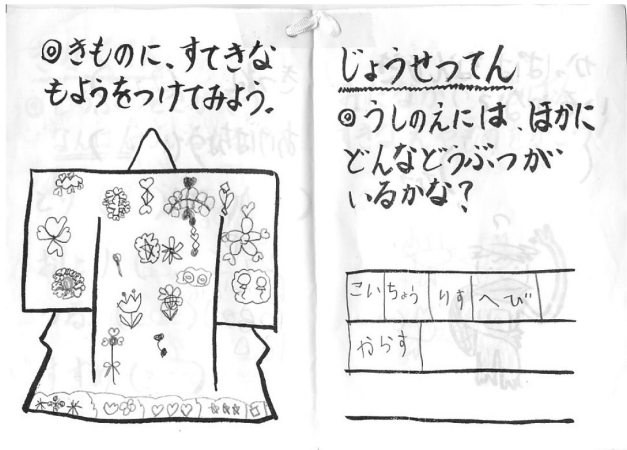 ◎きものに、すてきな
もようをつけてみよう。
じょうせつてん
◎うしのえには、ほかに
どんなどうぶつが
いるかな？
こい ちょう りす へび
からす